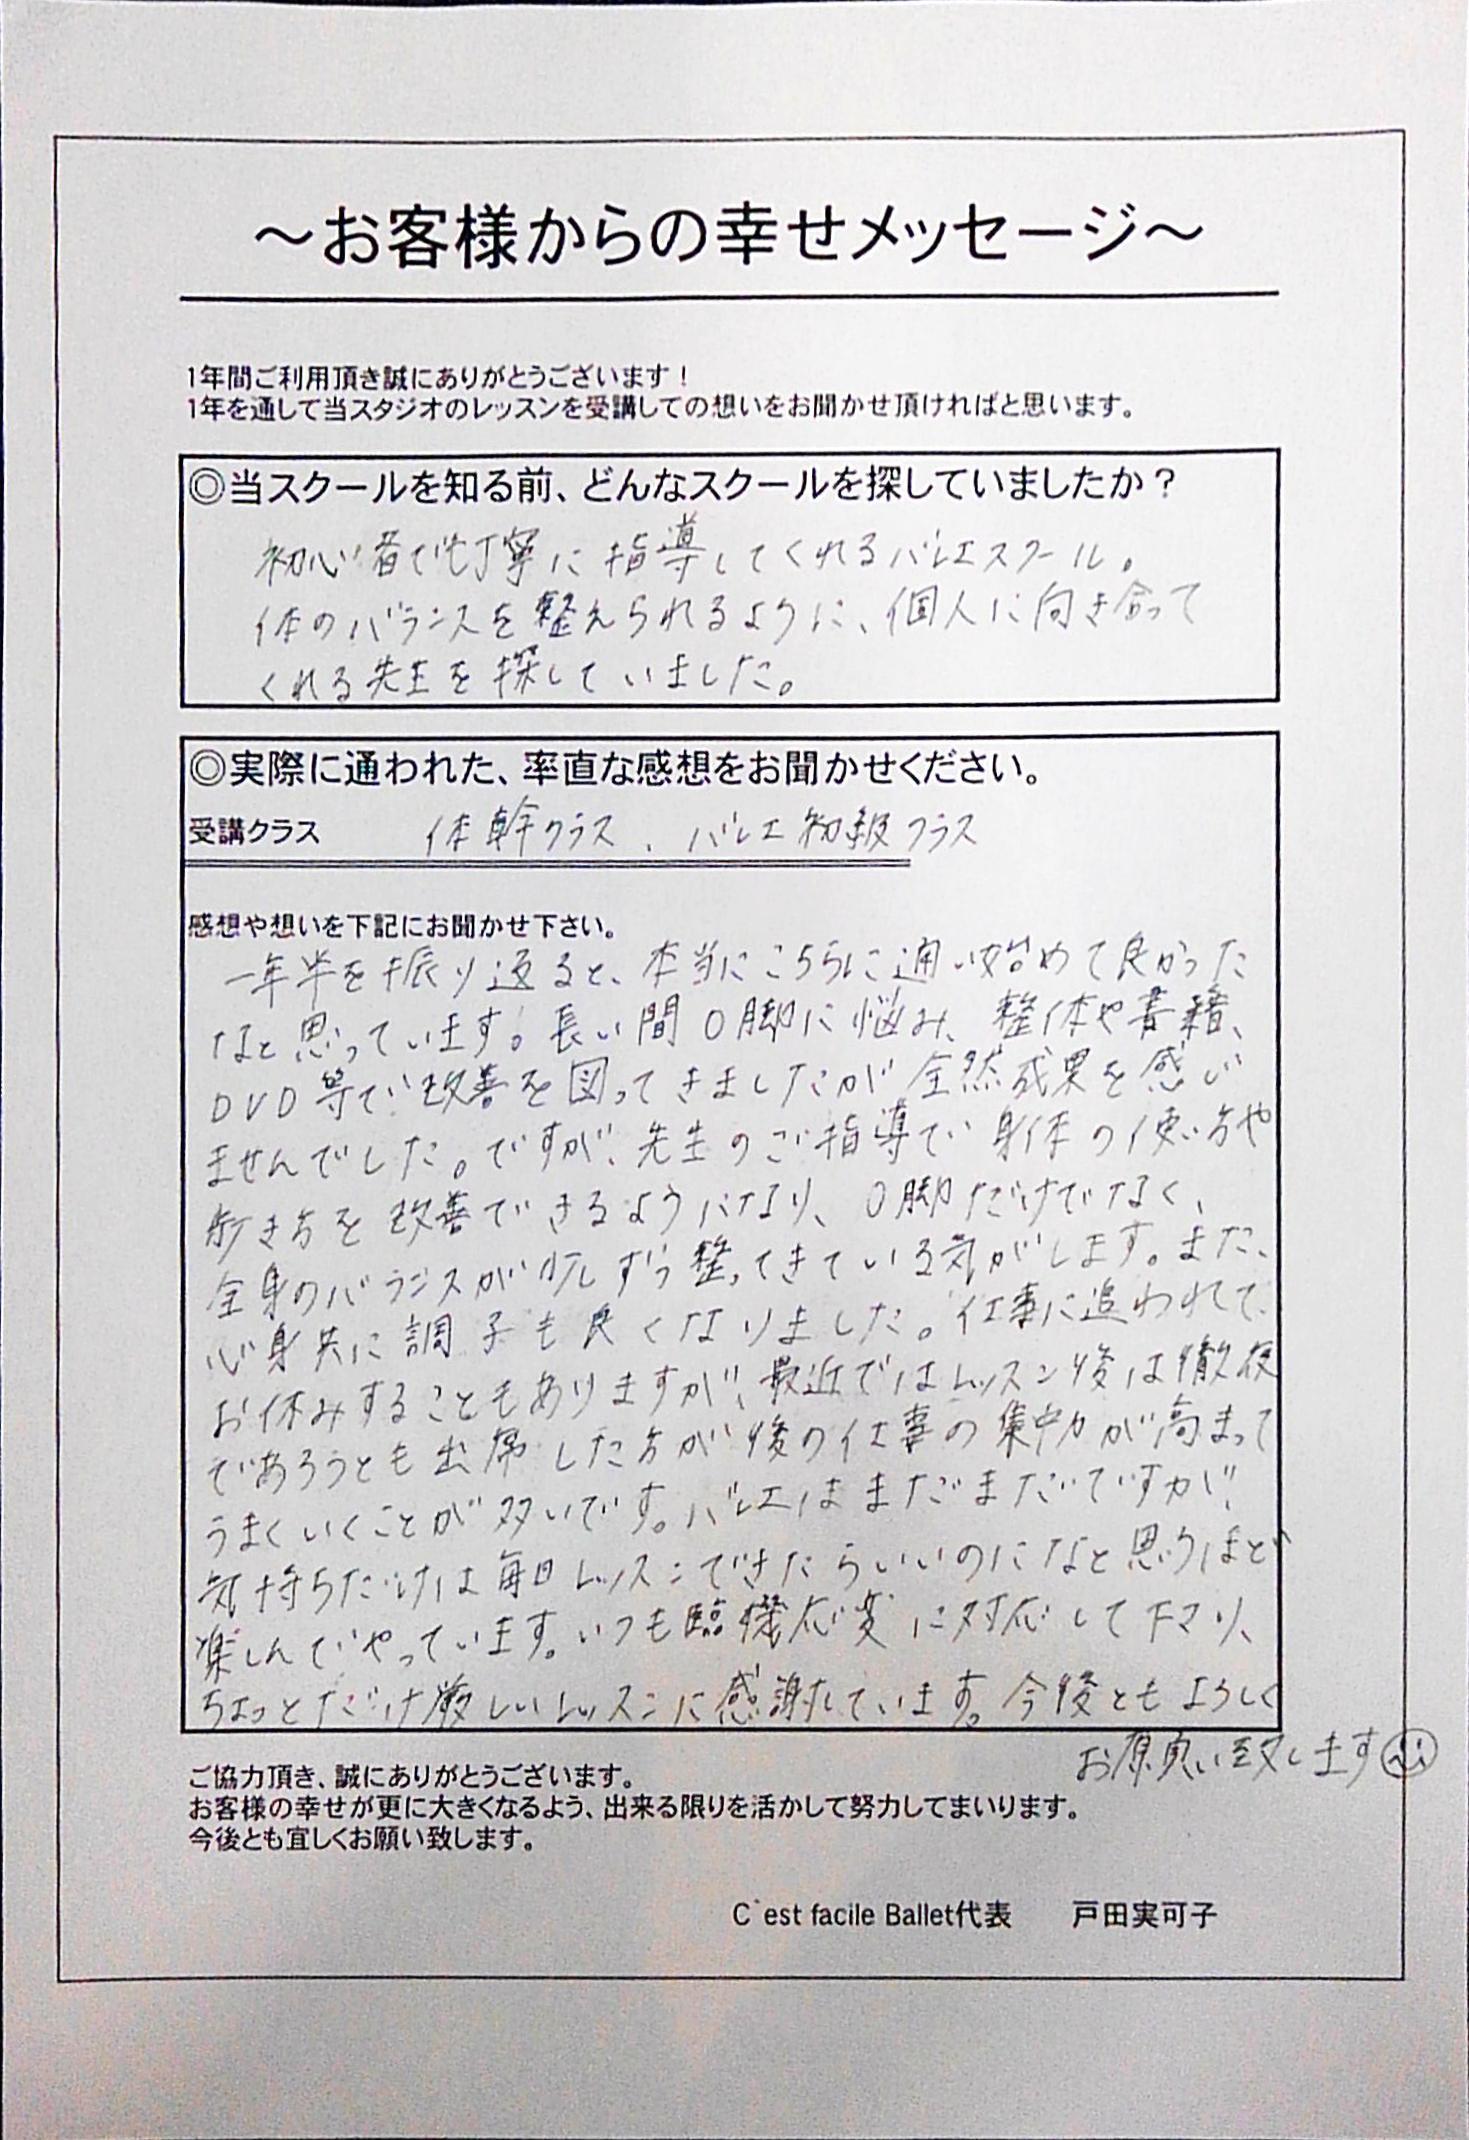 ～お客様からの幸せメッセージ～
1年間ご利用頂き誠にありがとうございます！
1年を通して当スタジオのレッスンを受講しての想いをお聞かせ頂ければと思います。
◎当スクールを知る前、どんなスクールを探していましたか？
初心者でも丁寧に指導してくれるバレエスクール。
体のバランスを整えられるように、個人に向き合って
くれる先生を探していました。
◎実際に通われた、率直な感想をお聞かせください。
受講クラス 体幹クラス、バレエ初級クラス
感想や想いを下記にお聞かせ下さい。
一年半を振り返ると、本当にこちらに通い始めて良かった
なと思っています。長い間O脚に悩み、整体や書籍、
DVD等で改善を図ってきましたが全然成果を感じ
ませんでした。ですが、先生のご指導で身体の使い方や
歩き方を改善できるようになり、O脚だけでなく、
全身のバランスが少しずつ整ってきている気がします。また、
心身共に調子も良くなりました。仕事に追われて、
お休みすることもありますが、最近ではレッスン後は徹夜
であろうとも出席した方が後の仕事の集中力が高まって
うまくいくことが多いです。バレエはまだまだですが、
気持ちだけは毎日レッスンできたらいいのになと思うほど
楽しんでやっています。いつも臨機応変に対応して下さり、
ちょっとだけ厳しいレッスンに感謝しています。今後ともよろしく
お願い致します
ご協力頂き、誠にありがとうございます。
お客様の幸せが更に大きくなるよう、出来る限りを活かして努力してまいります。
今後とも宜しくお願い致します。
C`est facile Ballet代表 戸田実可子